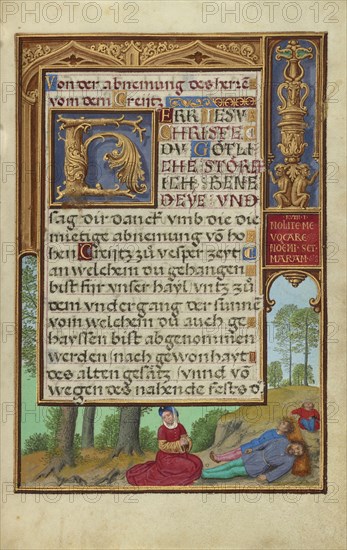 Von der abnemung des herrn
vom dem Creütz
HERR IESV
CHRISTE
DV GÖTLI
CHE STÖRE
ICH BENE
DEYE VND
sag dir danck vmb die die
mietige abnemung vō ho
hen Creütz zů vesper zeyt
an welchem du gehangen
bist für vnser hayl vntz zů
dem vndergang der sunnē
vom welchem du auch ge
hayssen bist abgenommen
werden nach gewonhayt
des alten gesätz vnnd vō
wegen des nahende fests d
RVTH I
NOLITE ME
VOCARE
NOEMI SET
MARAM